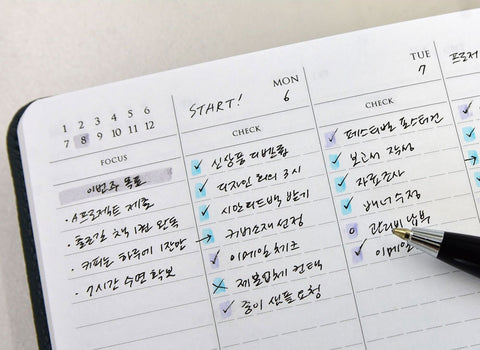 1 2 3 4 5 6
7 8 9 10 11 12
FOCUS
이번주 목표
· A프로젝트 제출
· 출근길 책 1권 완독
· 커피는 하루에 1잔만
· 7시간 수면 확보
START!
MON
6
CHECK
신상품 디벨롭
디자인 회의 3시
시안 피드백 받기
커버소재 선정
이메일 체크
제본업체 컨택
종이 샘플 요청
TUE
7
CHECK
페스티벌 포스터건
보고서 작성
자료조사
배너 수정
관리비 납부
이메일
프로제